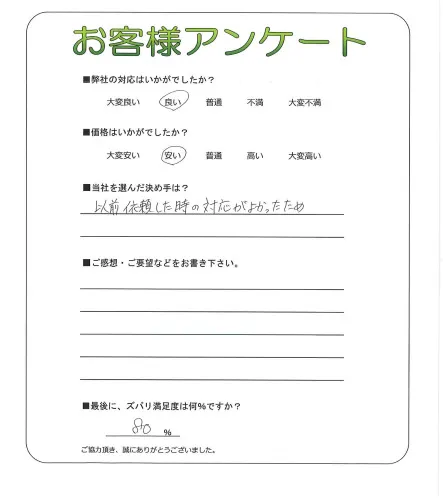 お客様アンケート
■弊社の対応はいかがでしたか？
大変良い 良い 普通 不満 大変不満
■価格はいかがでしたか？
大変安い 安い 普通 高い 大変高い
■当社を選んだ決め手は？
以前依頼した時の対応がよかったため
■ご感想・ご要望などをお書き下さい。
■最後に、ズバリ満足度は何％ですか？
80 ％
ご協力頂き、誠にありがとうございました。